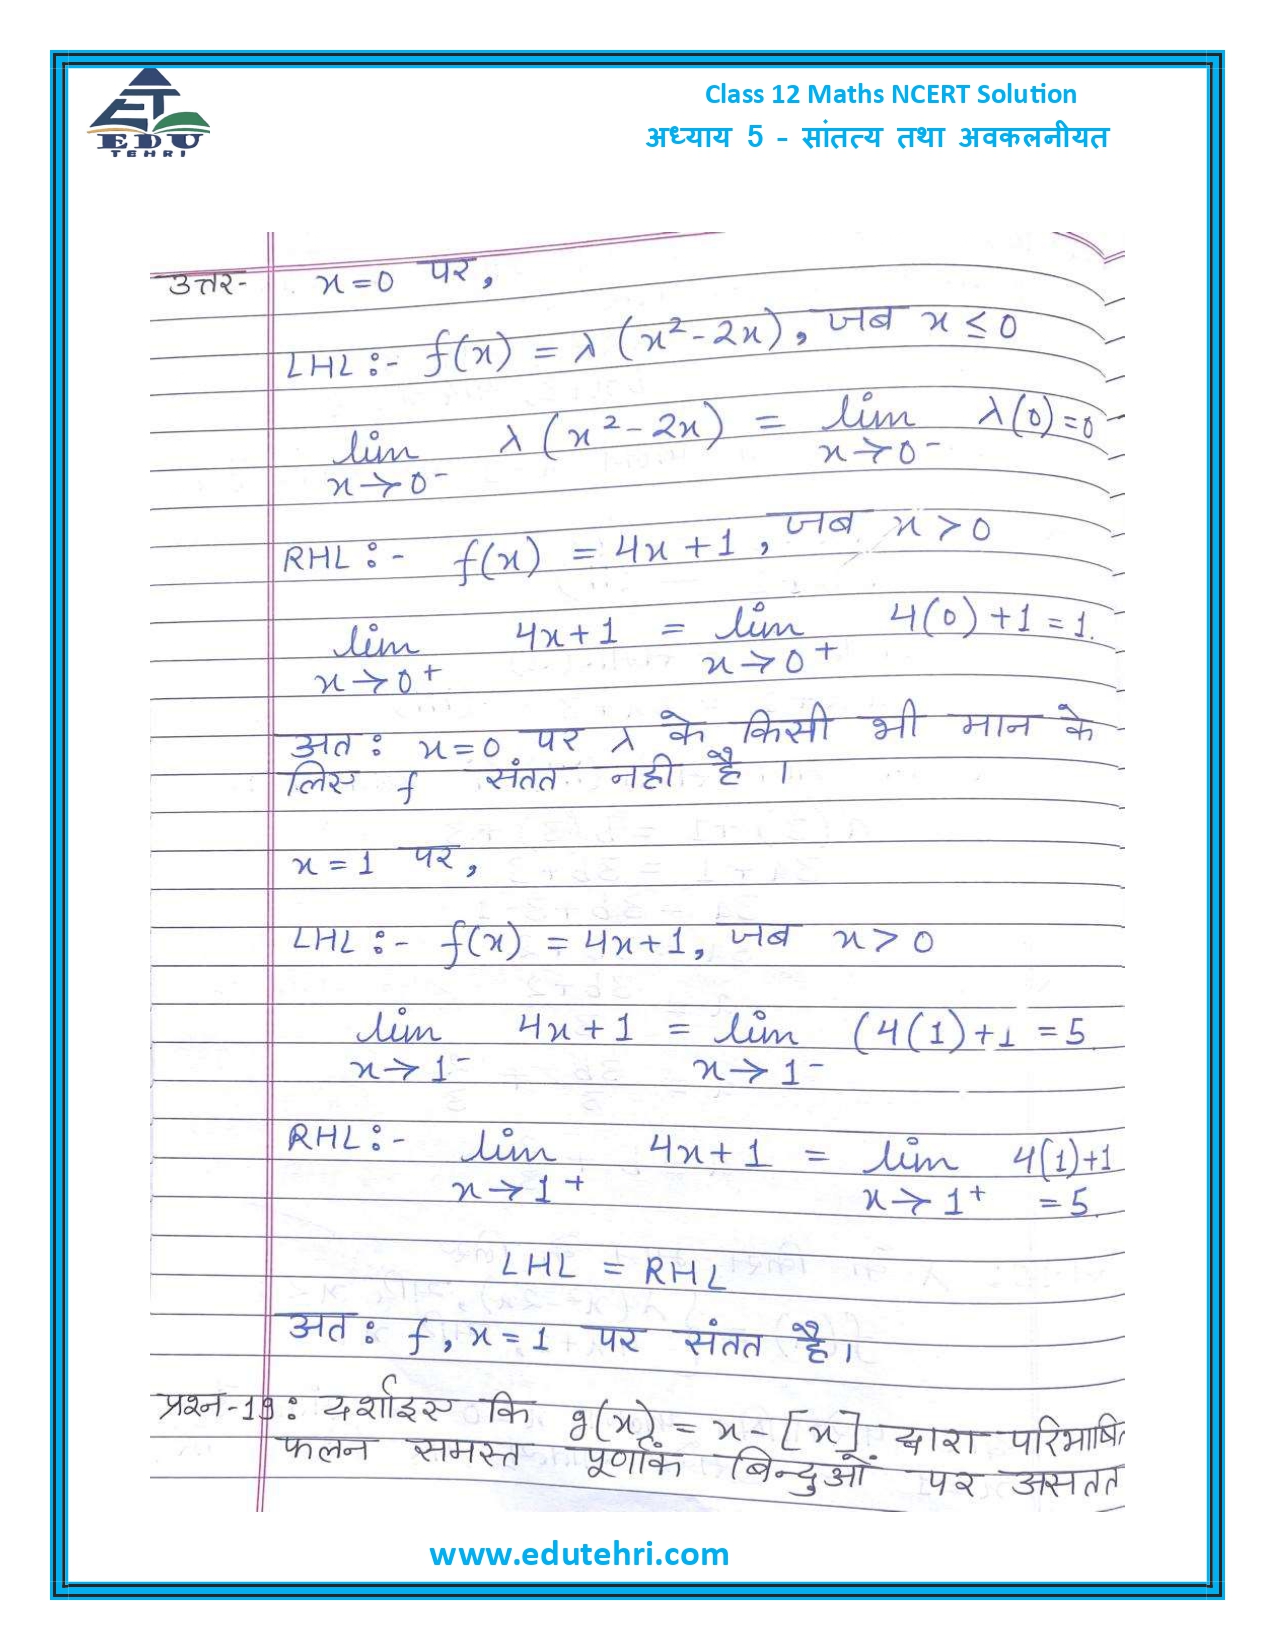 EDU
TEHRI
Class 12 Maths NCERT Solution
अध्याय 5 - सांतत्य तथा अवकलनीयत
उत्तर- x=0 पर,
LHL :- f(x) = λ (x² - 2x), जब x ≤ 0
lim x→0⁻ λ (x² - 2x) = lim x→0⁻ λ(0) = 0
RHL :- f(x) = 4x + 1, जब x > 0
lim x→0⁺ 4x + 1 = lim x→0⁺ 4(0) + 1 = 1.
अतः x=0 पर λ के किसी भी मान के
लिए f संतत नही है ।
x = 1 पर,
LHL :- f(x) = 4x+1, जब x > 0
lim x→1⁻ 4x + 1 = lim x→1⁻ (4(1)+1 = 5
RHL :- lim x→1⁺ 4x + 1 = lim x→1⁺ 4(1)+1
= 5.
LHL = RHL
अतः f, x = 1 पर संतत है।
प्रश्न-19: दर्शाइए कि g(x) = x - [x] द्वारा परिभाषित
फलन समस्त पूर्णांक बिन्दुओं पर असतत
www.edutehri.com